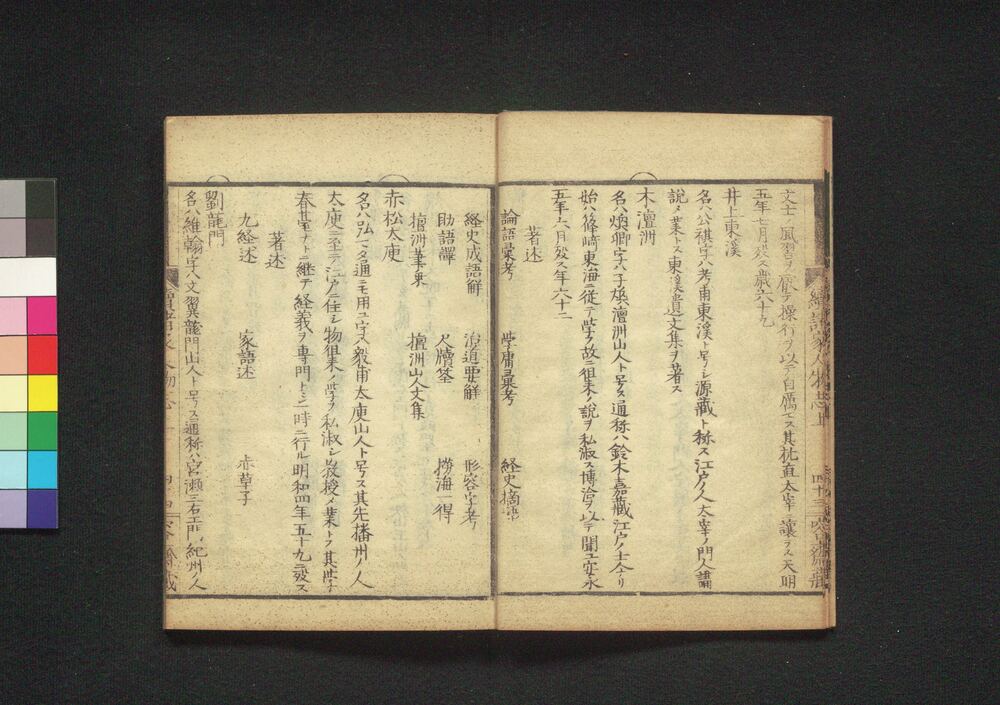 文士ノ風習ヲ厭テ操行ヲ以テ自厲マス其抗直太宰ニ讓ラス天明
五年七月歿ス歳六十九
井上東溪
名ハ公祺字ハ考甫東溪ト号シ源藏ト称ス江戸ノ人太宰ノ門人講
説ヲ業トス東溪遺文集ヲ著ス
木澶洲
名ハ煥卿字ハ子煥澶洲山人ト号ス通称ハ鈴木嘉藏江戸ノ士人ナリ
始ハ篠﨑東海ニ従テ学フ故徂来ノ説ヲ私淑ス博洽ヲ以テ聞ユ安永
五年六月歿ス年六十二
著述
論語彙考
学庸彙考
経史摘語
経史成語解
治道要解
形容字考
助語譯
尺牘筌
撈海一得
澶洲筆乗
澶洲山人文集
赤松太庾
名ハ弘マタ通ニモ用ユ字ハ毅甫太庾山人ト号ス其先播州ノ人
太庾ニ至テ江戸ニ住シ物徂来ノ学ヲ私淑シ教授ヲ業トス其学
春臺ナトニ継テ経義ヲ専門トシ一時ニ行ル明和四年五十九ニ歿ス
著述
九経述
家語述
赤草子
劉龍門
名ハ維翰字ハ文翼龍門山人ト号ス通称ハ宮瀬三右エ門紀州ノ人